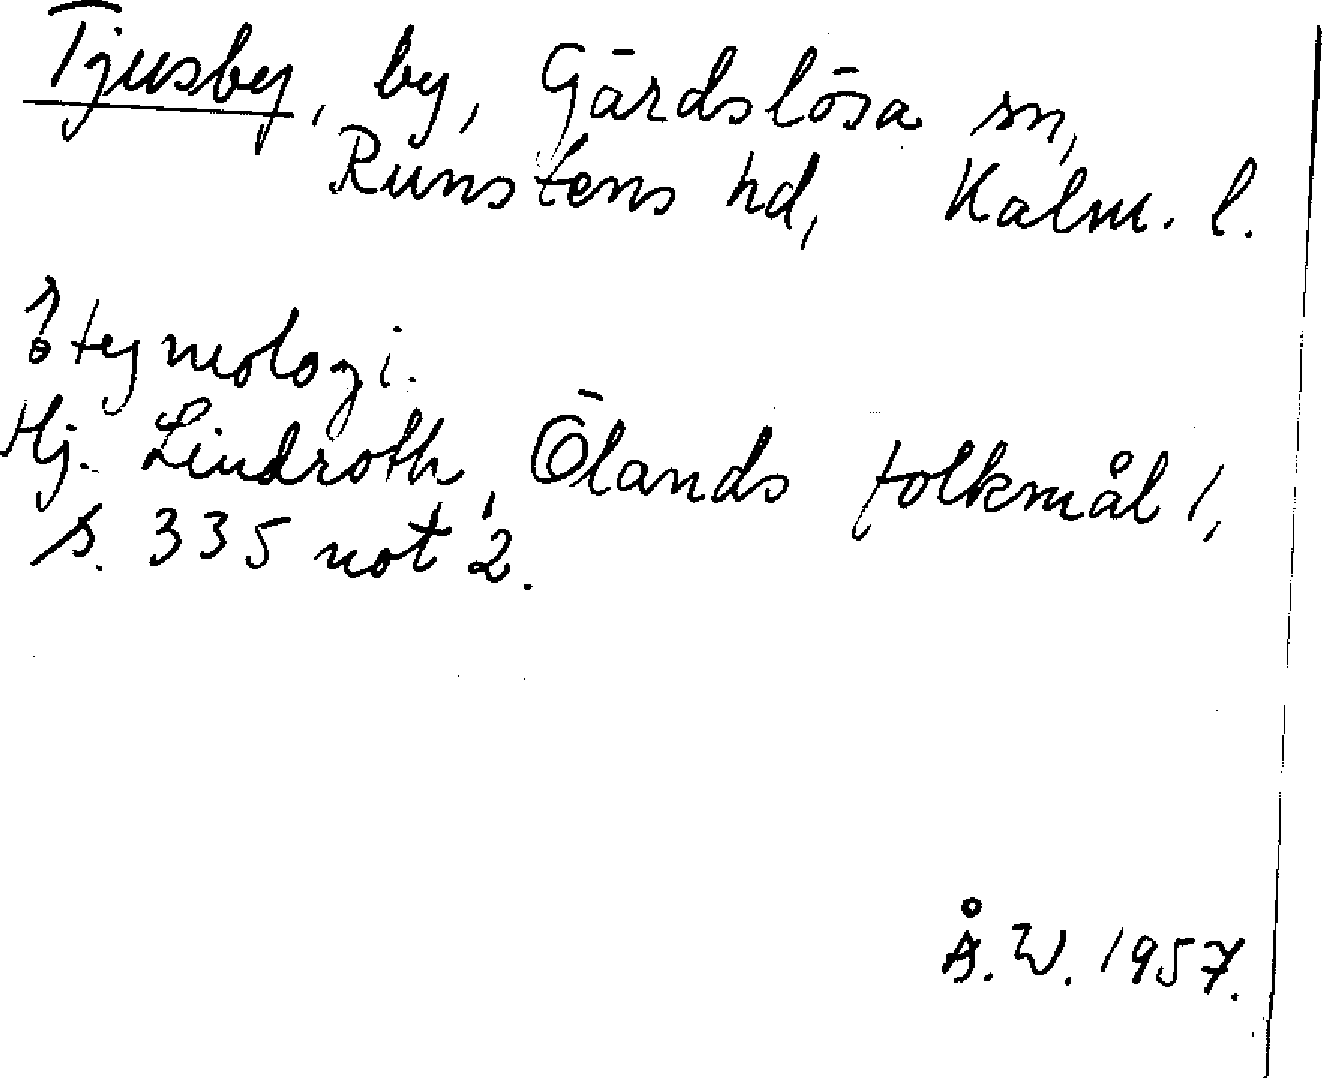 Tjusby, by, Gärdslösa sn,
Runstens hd, Kalm. l.
Etymologi.
Hj. Lindroth, Ölands folkmål 1,
s. 335 not 2.
Å. W. 1957.